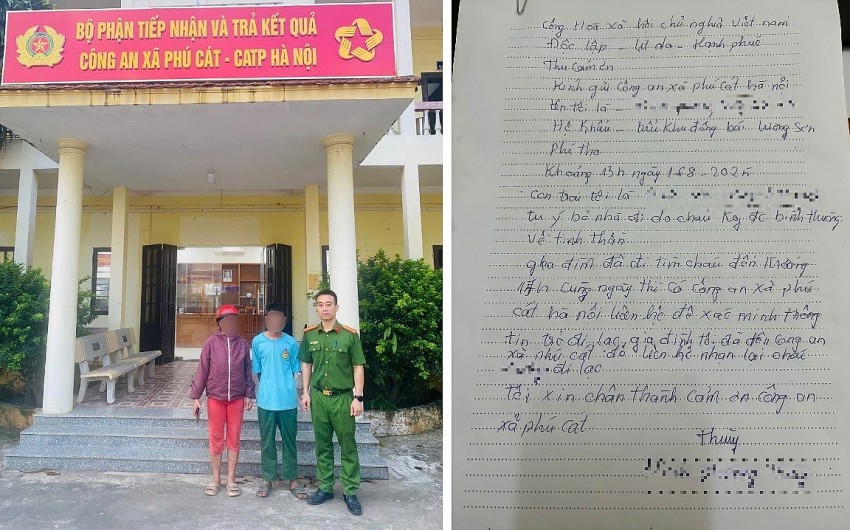 BỘ PHẬN TIẾP NHẬN VÀ TRẢ KẾT QUẢ
CÔNG AN XÃ PHÚ CÁT - CATP HÀ NỘI
Cộng Hoà xã hội chủ nghĩa việt nam
Độc lập - tự do - Hạnh phúc
Thư cảm ơn
Kính gửi công an xã phú cát hà nội
tên tôi là -
Hộ Khẩu - tiểu khu đồng bái Lương Sơn
Phú thọ
Khoảng 13h ngày 1-8-2025
Con trai tôi là
tự ý bỏ nhà đi do cháu Ko đc bình thường
về tinh thần
gia đình đã đi tìm cháu đến Khoảng
17h cùng ngày thì có công an xã phú
cát hà nội liên hệ để xác minh thông
tin trẻ đi lạc, gia đình tôi đã đến công an
xã phú cát để liên hệ nhận lại cháu
đi lạc
tôi xin chân thành cảm ơn công an
xã phú cát
thủy